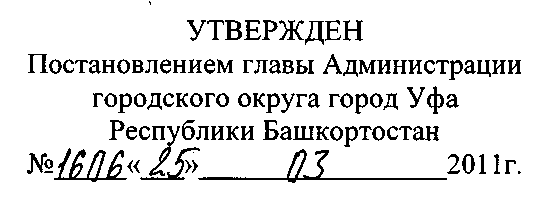 УТВЕРЖДЕН
Постановлением главы Администрации
городского округа город Уфа
Республики Башкортостан
№ 1606 «25» 03 2011г.